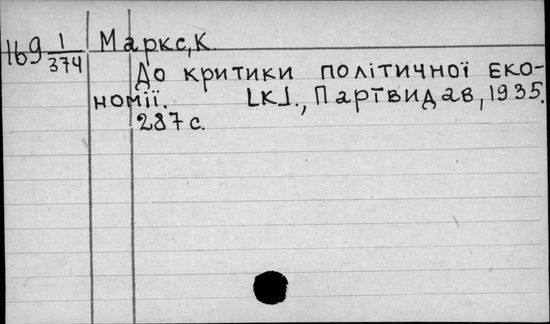 169 1/374 Маркс, К.
До критики політичної еко-
номії. [К]., Партвидав, 1935.
287 с.